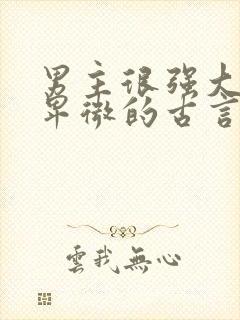 男主很强大
卑微的古言
雲我無心